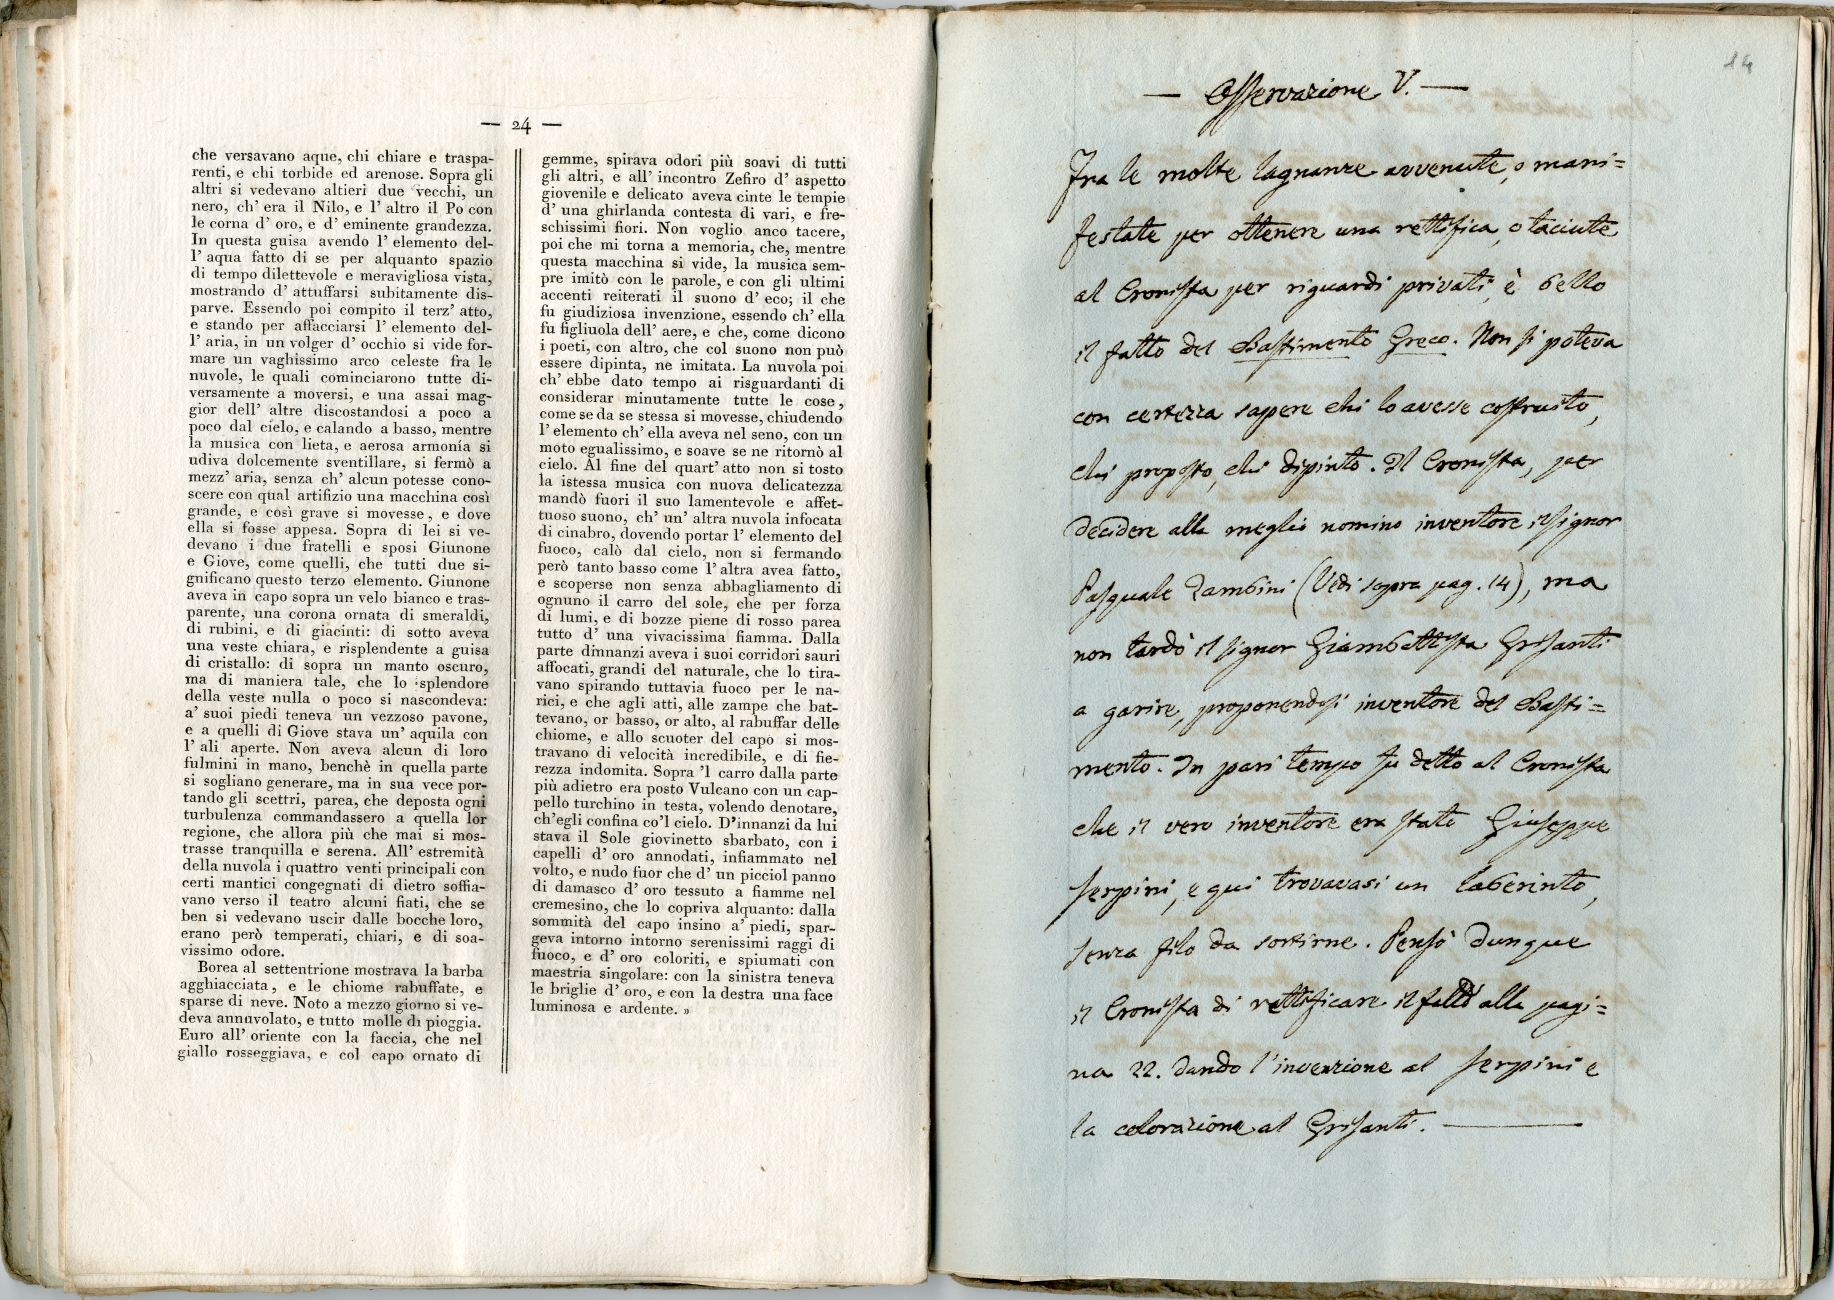 — 24 —
che versavano aque, chi chiare e traspa-
renti, e chi torbide ed arenose. Sopra gli
altri si vedevano altieri due vecchi, un
nero, ch' era il Nilo, e l' altro il Po con
le corna d' oro, e d' eminente grandezza.
In questa guisa avendo l' elemento del-
l' aqua fatto di se per alquanto spazio
di tempo dilettevole e meravigliosa vista,
mostrando d' attuffarsi subitamente dis-
parve. Essendo poi compito il terz' atto,
e stando per affacciarsi l' elemento del-
l' aria, in un volger d' occhio si vide for-
mare un vaghissimo arco celeste fra le
nuvole, le quali cominciarono tutte di-
versamente a moversi, e una assai mag-
gior dell' altre discostandosi a poco a
poco dal cielo, e calando a basso, mentre
la musica con lieta, e aerosa armonía si
udiva dolcemente sventillare, si fermò a
mezz' aria, senza ch' alcun potesse cono-
scere con qual artifizio una macchina così
grande, e così grave si movesse, e dove
ella si fosse appesa. Sopra di lei si ve-
devano i due fratelli e sposi Giunone
e Giove, come quelli, che tutti due si-
gnificano questo terzo elemento. Giunone
aveva in capo sopra un velo bianco e tras-
parente, una corona ornata di smeraldi,
di rubini, e di giacinti: di sotto aveva
una veste chiara, e risplendente a guisa
di cristallo: di sopra un manto oscuro,
ma di maniera tale, che lo splendore
della veste nulla o poco si nascondeva:
a' suoi piedi teneva un vezzoso pavone,
e a quelli di Giove stava un' aquila con
l' ali aperte. Non aveva alcun di loro
fulmini in mano, benchè in quella parte
si sogliano generare, ma in sua vece por-
tando gli scettri, parea, che deposta ogni
turbulenza commandassero a quella lor
regione, che allora più che mai si mos-
trasse tranquilla e serena. All' estremità
della nuvola i quattro venti principali con
certi mantici congegnati di dietro soffia-
vano verso il teatro alcuni fiati, che se
ben si vedevano uscir dalle bocche loro,
erano però temperati, chiari, e di soa-
vissimo odore.
Borea al settentrione mostrava la barba
agghiacciata, e le chiome rabuffate, e
sparse di neve. Noto a mezzo giorno si ve-
deva annuvolato, e tutto molle di pioggia.
Euro all' oriente con la faccia, che nel
giallo rosseggiava, e col capo ornato di
gemme, spirava odori più soavi di tutti
gli altri, e all' incontro Zefiro d' aspetto
giovenile e delicato aveva cinte le tempie
d' una ghirlanda contesta di vari, e fre-
schissimi fiori. Non voglio anco tacere,
poi che mi torna a memoria, che, mentre
questa macchina si vide, la musica sem-
pre imitò con le parole, e con gli ultimi
accenti reiterati il suono d' eco; il che
fu giudiziosa invenzione, essendo ch' ella
fu figliuola dell' aere, e che, come dicono
i poeti, con altro, che col suono non può
essere dipinta, ne imitata. La nuvola poi
ch' ebbe dato tempo ai risguardanti di
considerar minutamente tutte le cose,
come se da se stessa si movesse, chiudendo
l' elemento ch' ella aveva nel seno, con un
moto egualissimo, e soave se ne ritornò al
cielo. Al fine del quart' atto non si tosto
la istessa musica con nuova delicatezza
mandò fuori il suo lamentevole e affet-
tuoso suono, ch' un' altra nuvola infocata
di cinabro, dovendo portar l' elemento del
fuoco, calò dal cielo, non si fermando
però tanto basso come l' altra avea fatto,
e scoperse non senza abbagliamento di
ognuno il carro del sole, che per forza
di lumi, e di bozze piene di rosso parea
tutto d' una vivacissima fiamma. Dalla
parte dinnanzi aveva i suoi corridori sauri
affocati, grandi del naturale, che lo tira-
vano spirando tuttavia fuoco per le na-
rici, e che agli atti, alle zampe che bat-
tevano, or basso, or alto, al rabuffar delle
chiome, e allo scuoter del capo si mos-
travano di velocità incredibile, e di fie-
rezza indomita. Sopra 'l carro dalla parte
più adietro era posto Vulcano con un cap-
pello turchino in testa, volendo denotare,
ch'egli confina co'l cielo. D'innanzi da lui
stava il Sole giovinetto sbarbato, con i
capelli d' oro annodati, infiammato nel
volto, e nudo fuor che d' un picciol panno
di damasco d' oro tessuto a fiamme nel
cremesino, che lo copriva alquanto: dalla
sommità del capo insino a' piedi, spar-
geva intorno intorno serenissimi raggi di
fuoco, e d' oro coloriti, e spiumati con
maestria singolare: con la sinistra teneva
le briglie d' oro, e con la destra una face
luminosa e ardente. »
14
— Osservazione V. —
Fra le molte lagnanze avvenute, o mani=
festate per ottenere una rettifica, o taciute
al Cronista per riguardi privati, è bello
il fatto del Bastimento Greco. Non si poteva
con certezza sapere chi lo avesse costruito,
chi proposto, chi dipinto. Il Cronista, per
decidere alla meglio nomino inventore il signor
Pasquale Zambini (Vedi sopra pag. 14), ma
non tardò il signor Giambattista Grisanti
a garire, proponendosi inventore del Basti=
mento. In pari tempo fu detto al Cronista
che il vero inventore era stato Giuseppe
Serpini, e qui trovavasi un laberinto,
senza filo da sortirne. Pensò dunque
il Cronista di rettificare il fatto alla pagi=
na 22. dando l'invenzione al Serpini e
la colorazione al Grisanti. —